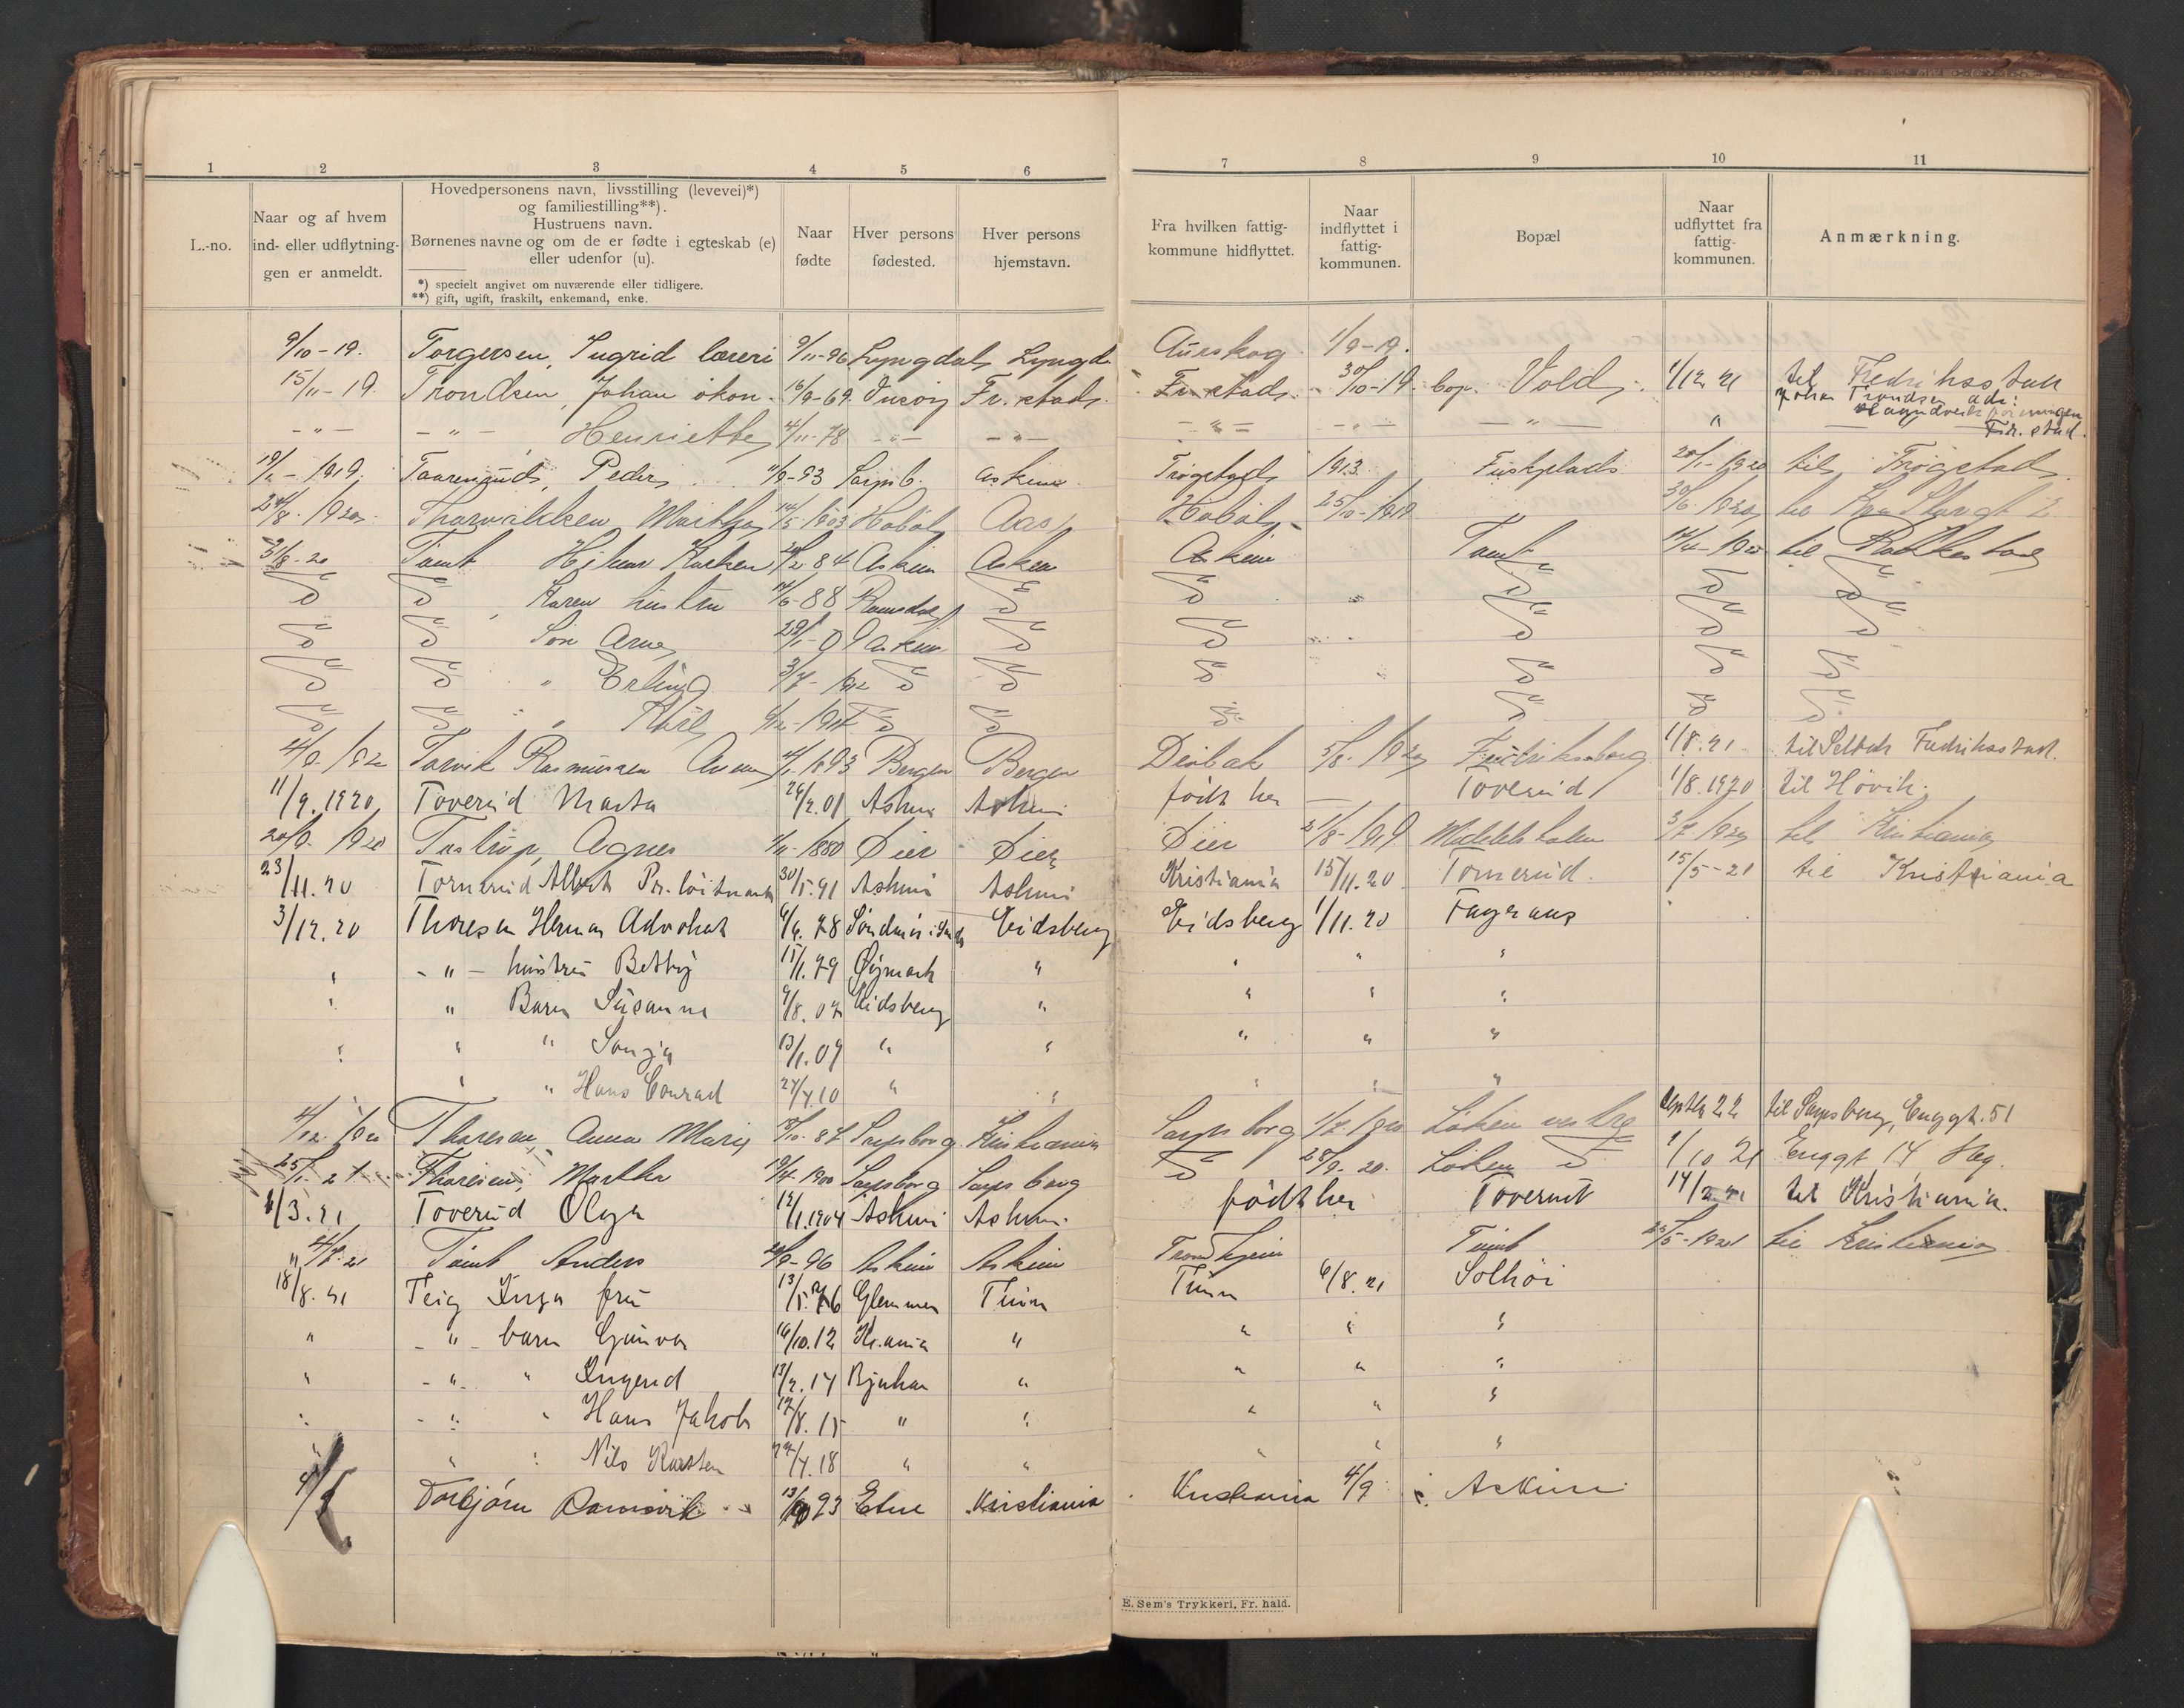 1 2 3 4 5 6 7 8 9 10 11
L.-no.
Naar og af hvem
ind- eller udflytnin-
gen er anmeldt.
Hovedpersonens navn, livsstilling (levevei)*)
og familiestilling**).
Hustruens navn.
Børnenes navne og om de er fødte i egteskab (e)
eller udenfor (u).
*) specielt angivet om nuværende eller tidligere.
**) gift, ugift, fraskilt, enkemand, enke.
Naar
fødte
Hver persons
fødested.
Hver persons
hjemstavn.
Fra hvilken fattig-
kommune hidflyttet.
Naar
indflyttet i
fattig-
kommunen.
Bopæl
Naar
udflyttet fra
fattig-
kommunen.
Anmærkning.
9/10-19. Torgersen, Ingrid læreri 9/11-96 Lyngdal Lyngd. Aurskog 1/9-19.
15/11-19. Trondsen, Johan økon. 16/9-69 Fr.stad. Fr.stad. 30/10-19. bop. Vold 1/12 21 til Fredriksstad
Johan Trondsen adr:
Fr. stad.
-"- -"- Henriette 4/11-78 -"- -"- -"- -"- -"- "
1919. Peder 93 Sarpsb. Askim Trøgstad 1913 20/1-1920 til Trøgstad
24/8-1920 Thorvaldsen Martha 1903 Hobøl Aas Hobøl 25/10-1919 30/6-1920 til
31/8-20 Tømt Hjelmar Karsten 84 Askim Askim Askim Tømt 14/4-1920 til Rakkestad
do do Karen hustru 88 Ramsdal do do " do do do
do do Søn Arne 29/1-09 Askim do do " do do do
do do " Erling 3/7-1912 do do do " do do do
do do " Kåre do do do do do do
4/9-1920 Torvik Rasmussen 1893 Bergen Bergen Drøbak 5/8-1920 Fredriksborg 1/8.21 til Selbak Fredriksstad.
11/9.1920 Toverud Marta 01 Askim Askim født her — Toverud 1/8.1920 til Høvik.
20/9-1920 Tastrup, Agnes 1880 Lier Lier Lier 21/8-1919 3/7-1920 til Kristiania
23/11.20 Tornerud Albert Pr. løitnant 30/5.91 Askim Askim Kristiania 15/11.20 Tornerud. 15/5-21 til Kristiania
3/12.20 Thoresen Herman Advokat 78 Eidsberg Eidsberg 1/11.20
" -"- hustru Betty 15/1.79 Øymark " " " "
" " Barn Susanna Eidsberg " " " "
" " " Sonja 13/1.09 " " " " "
" " Hans Conrad 10 " " " " "
4/12 1920 Thoresen, Anna Marie 87 Sarpsborg Kristiania Sarpsborg 1/7-1920 Løken vestre 22 til Sarpsborg, Enggt. 51
25/1-21 Thoresen, Martha 1900 Sarpsborg Sarpsborg do 28/9-20. Løken do 1/10 21 Enggt 14
1/3.21 Toverud Olga 12/1.1904 Askim Askim. født her Toverud 14/2.21 til Kristiania.
" 4/7-21 Tømt Anders 96 Askim Askim Trondhjem Tømt 25/5-1921 til Kristiania
18/8.21 Teig Inga fru 13/5.76 Glemmen Tinn Tinn 6/8.21 Solhøi
" -"- barn Gunvor 16/10.12 Kr.ania " " " "
" -"- " Ingerid 13/2.14 Rjukan " " " "
" -"- " Hans Jakob 17/8.15 " " " " "
" " " Nils Karsten 18 " " " " "
Torbjørn 93 Etne Kristiania Kristiania 4/9 i Askim
E. Sem's Trykkeri, Fr. hald.